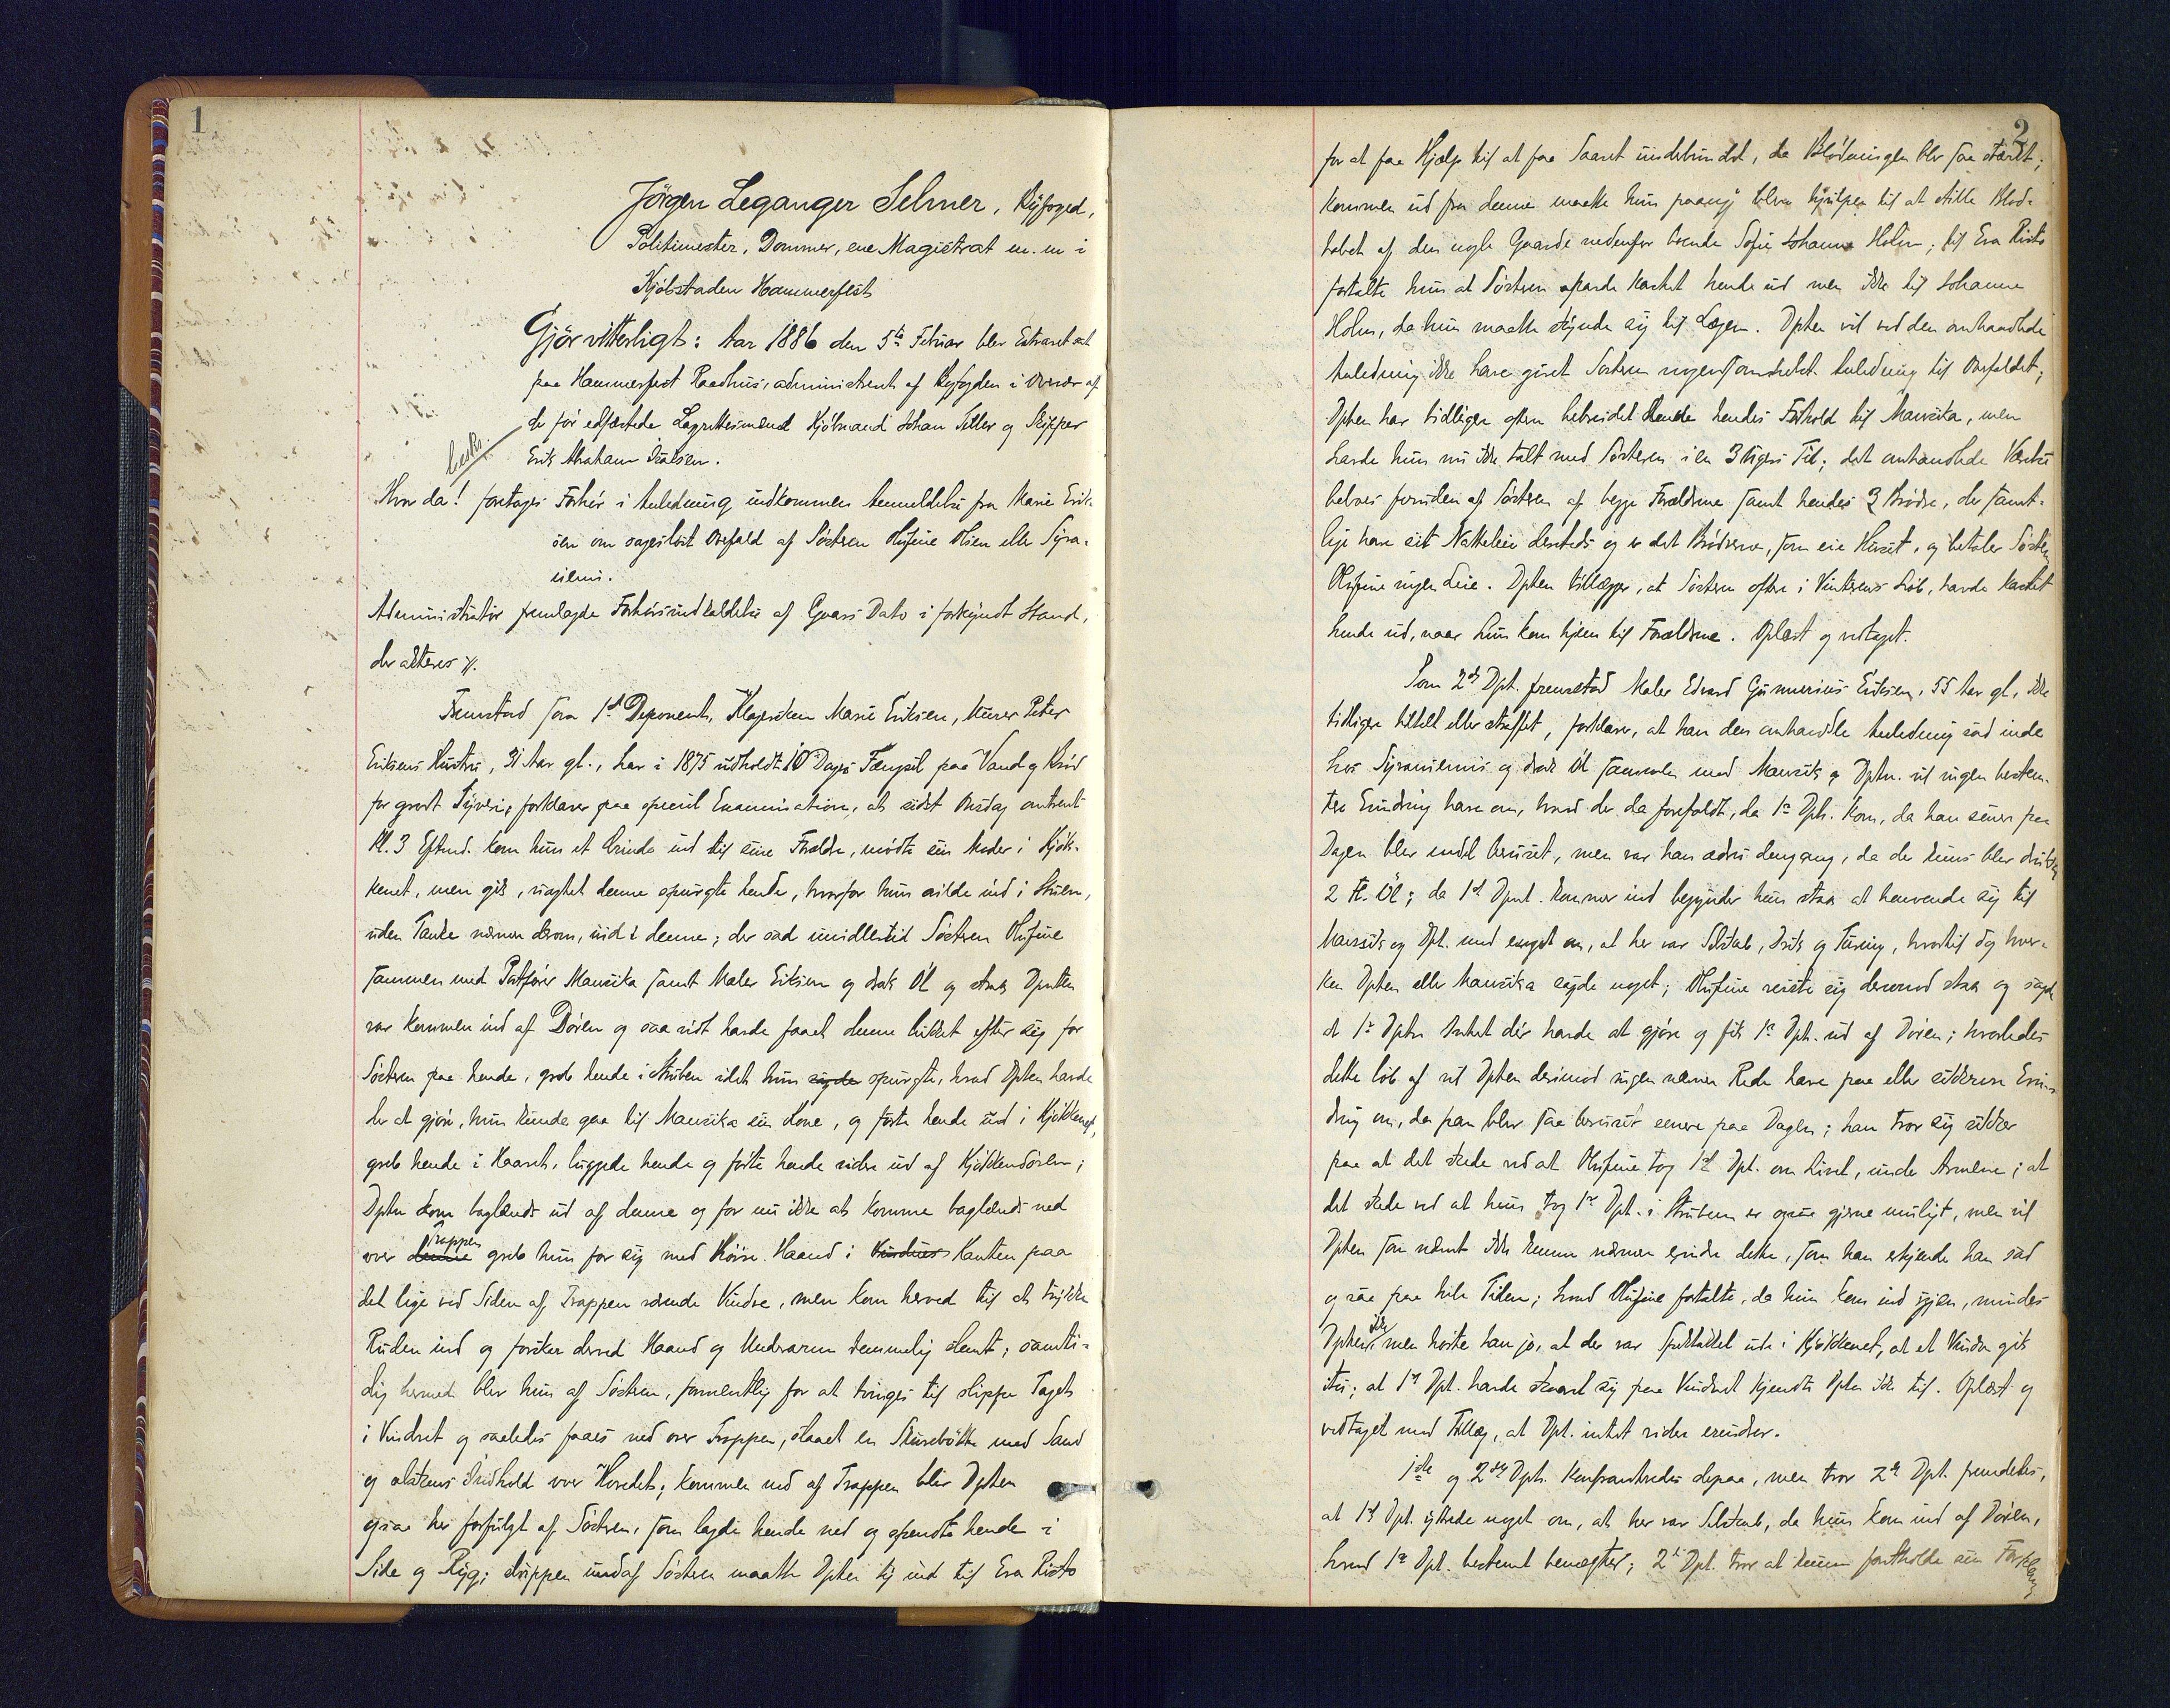 1
Jörgen Leganger Selmer, Byfoged,
Politimester, Dommer, ene Magistrat m.m i
Kjöbstaden Hammerfest
Gjör vitterligt: Aar 1886 den 5te Februar blev Extraret sat
paa Hammerfest Raadhus, administreret af Byfogden i Overvær af
de før edfæstede Lagrettesmænd Kjøbmand Johan Feller og Skipper
Erik Abraham Isaksen.
Hvor da! foretoges Forhør i Anledning indkommen Anmeldelse fra Marie Erik-
sen om sagesløst Overfald af Søsteren Olufine Olsen eller Syra-
niemi.
Administrator fremlagde Forhørsindkaldelse af Gaars Dato i forkyndt Stand,
der akteres
Fremstod som 1ste Deponent, Klagersken Marie Eriksen, Murer Peter
Eriksens Hustru, 31 Aar gl., har i 1875 udholdt 10 Dages Fængsel paa Vand og Brød
for grovt Tyveri, forklarer paa speciel Examination, at sidst Onsdag omtrent
Kl. 3 Efterm. kom hun et Ærinde ind til sine Forældre, mødte sin Moder i Kjøk-
kenet, men gik, uagtet denne spurgte hende, hvorfor hun vilde ind i Stuen,
uden Tanke nærmere derom, ind i denne; der sad imidlertid Søsteren Olufine
sammen med Postfører Mausika samt Maler Eriksen og drak Øl og straks Dpnten
var kommen ind af Døren og saavidt havde faaet denne lukket efter sig for
Søsteren paa hende, greb hende i Struben idet hun spurgte, hvad Dpten havde
der at gjøre, hun kunde gaa til Mausika sin Kone, og førte hende ud i Kjøkkenet,
greb hende i Haaret, luggede hende og førte hende videre ud af Kjøkkendøren;
Dpten kom baglænds ud af denne og for nu ikke at komme baglænds ned
over Trappen greb hun for sig med Høire Haand i Kanten paa
det lige ved Siden af Trappen værende Vindue, men kom herved til at trykke
Ruden ind og forskar derved Haand og Underarm temmelig slemt; samti-
dig hermed blev hun af Søsteren, formentlig for at tvinges til slippe Taget
i Vinduet og saaledes faaes ned over Trappen, slaaet en Skurebøtte med Sand
og alskens Indhold over Hovedet; kommen ned af Trappen blev Dpten
ogsaa her forfulgt af Søsteren, som lagde hende ned og spendte hende i
Side og Ryg; sluppen undaf Søsteren maatte Dpten ty ind til Eva Risto
2
for at faa Hjælp til at faa Saaret underbundet, da Blødningen blev saa stærk;
kommen ud fra denne maatte hun paany blive hjulpen til at stille Blod-
tabet af den nogle Gaarde nedenfor boende Sofie Johanna Holm; til Eva Risto
fortalte hun at Søsteren havde kastet hende ud men ikke til Johanna
Holm, da hun maatte skynde sig til Lægen. Dpten vil ved den omhandlede
Anledning ikke have givet Søsteren nogensomhelst Anledning til Overfaldet;
Dpten har tidligere oftere bebreidet hende hendes Forhold til Mausika, men
havde hun nu ikke talt med Søsteren i en 3 Ugers Tid; det omhandlede Værelse
beboes foruden af Søsteren af begge Forældrene samt hendes 3 Brødre, der samt-
lige have sit Natteleie dersteds og er det Brødrene, som eie Huset, og betaler Søsteren
Olufine ingen Leie. Dpten tillægger, at Søsteren oftere i Vinterens Løb, havde kastet
hende ud, naar hun kom hjem til Forældrene. Oplæst og vedtaget.
Som 2den Dpt. fremstod Maler Edvard Gunnerius Eriksen, 55 Aar gl., ikke
tidligere tiltalt eller straffet, forklarer, at han den omhandlede Anledning sad inde
hos Syraniemis og drak Øl sammen med Mausika og Dpten. vil ingen bestem-
tere Erindring have om, hvad der da forefaldt, da 1ste Dpt. kom, da han senere paa
Dagen blev endel beruset, men var han ædru dengang, da der kuns blev drukket
2 Fl. Øl; da 1ste Dpnt. kommer ind begynder hun straks at henvende sig til
Mausika og Dpt. med noget om, at her var Selskab, Drik og Turing, hvortil dog hver-
ken Dpten eller Mausika sagde noget; Olufine reiste sig derimod straks og sagde
at 1ste Dpten Intet dér havde at gjøre og fik 1ste Dpt. ud af Døren; hvorledes
dette løb af vil Dpten derimod ingen nærmere Rede have paa eller sikkrere Erin-
dring om, da han blev saa beruset senere paa Dagen; han tror sig sikker
paa at det skede ved at Olufine tog 1ste Dpt. om Livet, under Armene; at
det skede ved at hun tog 1ste Dpt. i Struben er ogsaa gjerne muligt, men vil
Dpten som nævnt ikke kunne nærmere erindre dette, som han erkjender han sad
og saa paa hele Tiden; hvad Olufine fortalte, da hun kom ind igjen, mindes
Dpten ikke men hørte han jo, at der var Spektakkel ude i Kjøkkenet, at et Vindu gik
itu; at 1ste Dpt. havde skaaret sig paa Vinduet kjendte Dpten ikke til. Oplæst og
vedtaget med Tillæg, at Dpt. intet videre erindrer.
1ste og 2den Dpts. konfronteredes derpaa, men tror 2den Dpt. fremdeles,
at 1ste Dpt. ytrede noget om, at her var Selskab, da hun kom ind af Døren,
hvad 1ste Dpt. bestemt benægter; 2den Dpt. tror at kunne fastholde sin Forklaring